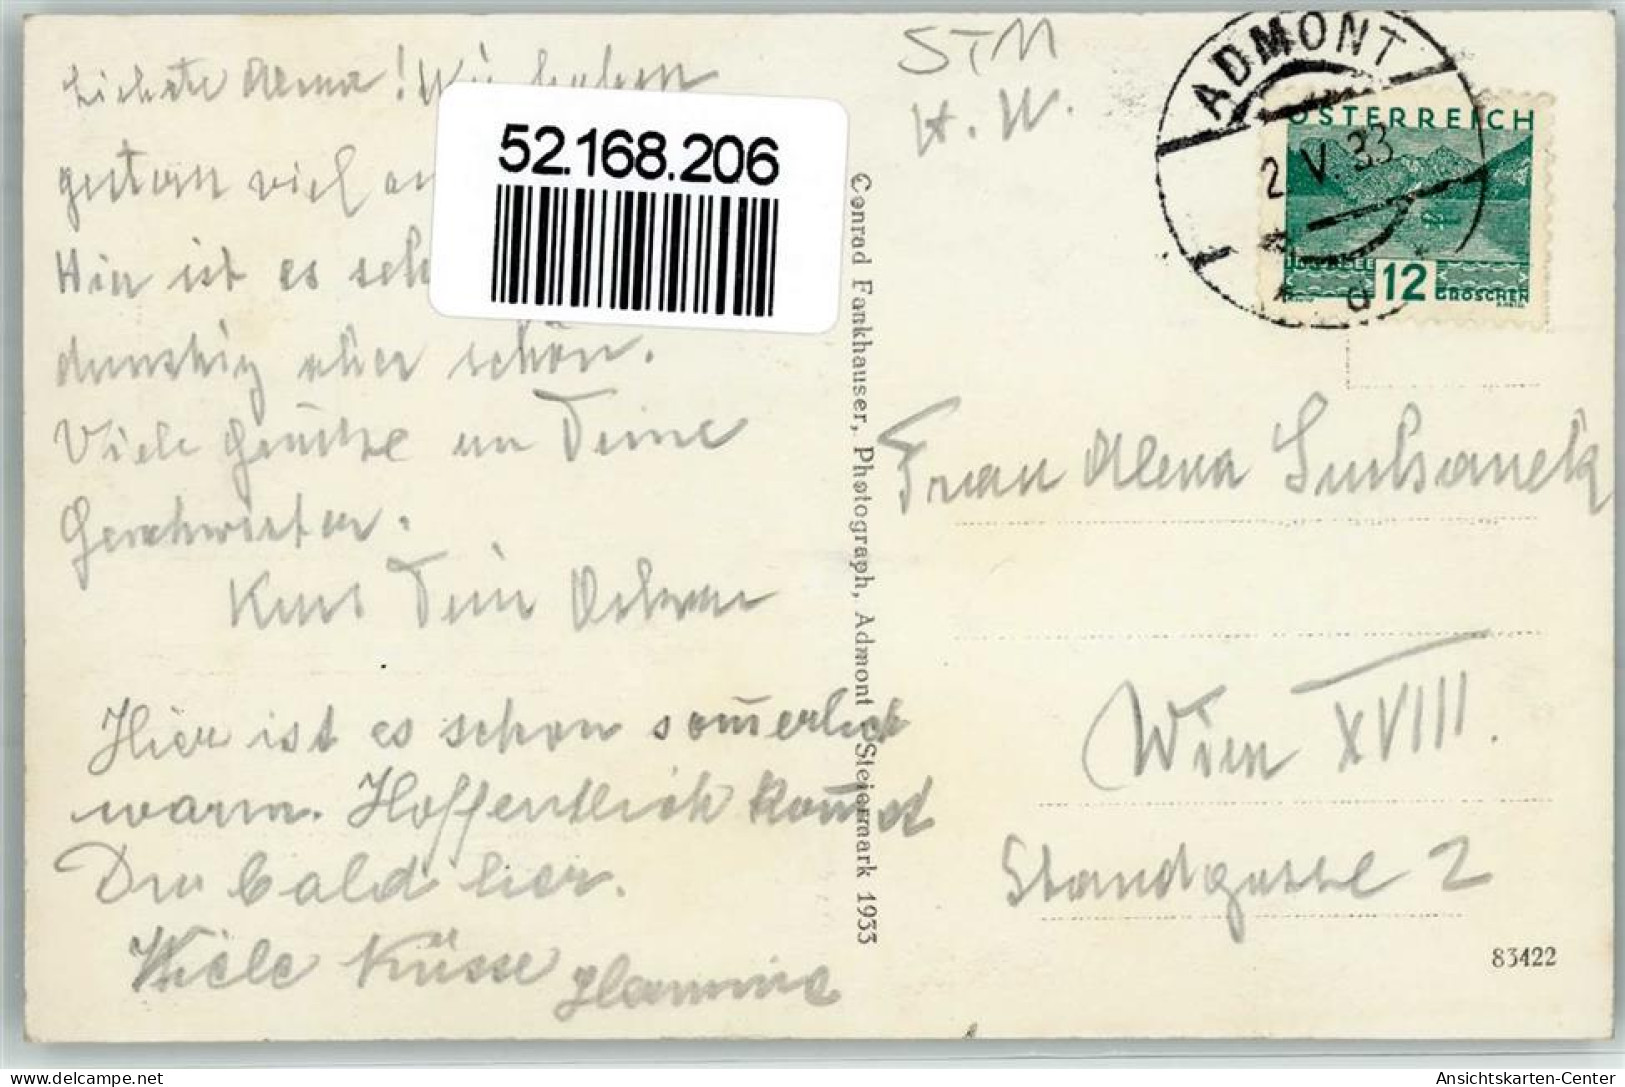 Liebste Alma! Wir haben
gestern viel
Hier ist es
dunstig aber schön.
Viele Grüße an Deine
Geschwister.
Dein
Hier ist es schon som̄erlich
warm. Hoffentlich kom̄st
Du bald hier.
Viele Küsse Hermine
52.168.206
Conrad Fankhauser, Photograph, Admont, Steiermark 1933
STM
H. W.
ADMONT
2.V.33
ÖSTERREICH
12 GROSCHEN
Frau Alma
Wien XVIII.
Standgasse 2
83422
delcampe.net
Ansichtskarten-Center